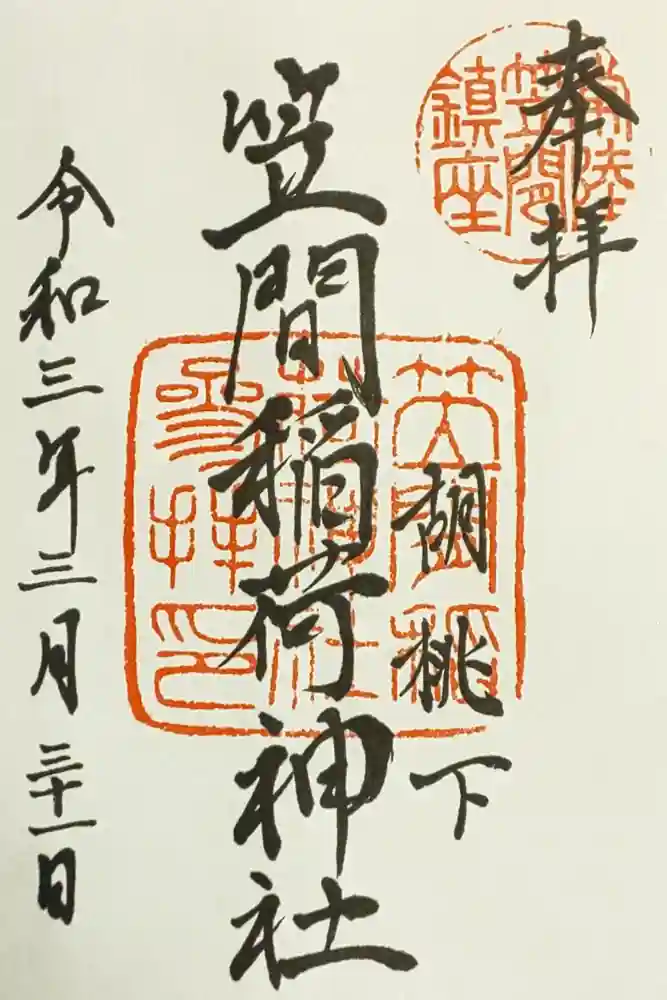 奉拝
常陸
笠間
鎮座
胡桃下
笠間稲荷神社
笠間稲
荷神社
参拝印
令和三年三月三十一日